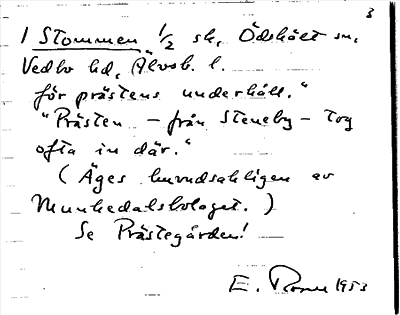 3
1 Stommen 1/2 sk, Ödskölt sn,
Vedbo hd, Älvsb. l.
för prästens underhåll."
"Prästen – från Steneby – tog
ofta in där."
(Äges huvudsakligen av
Munkedalsbolaget.)
Se Prästegården!
E. 1953